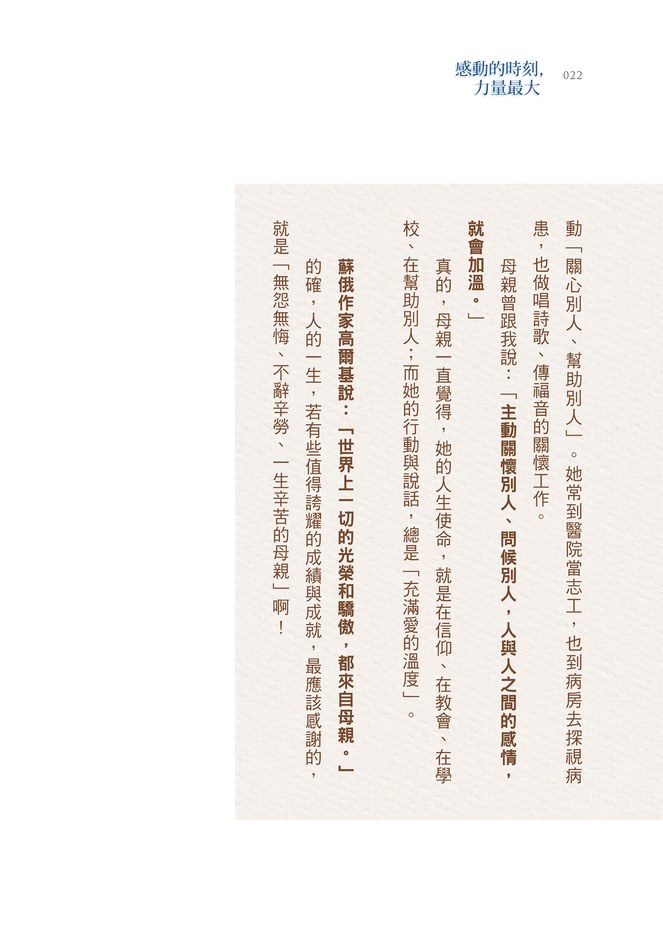 感動的時刻，
力量最大
022
動「關心別人、幫助別人」。她常到醫院當志工，也到病房去探視病
患，也做唱詩歌、傳福音的關懷工作。
母親曾跟我說：「主動關懷別人、問候別人，人與人之間的感情，
就會加溫。」
真的，母親一直覺得，她的人生使命，就是在信仰、在教會、在學
校、在幫助別人；而她的行動與說話，總是「充滿愛的溫度」。
蘇俄作家高爾基說：「世界上一切的光榮和驕傲，都來自母親。」
的確，人的一生，若有些值得誇耀的成績與成就，最應該感謝的，
就是「無怨無悔、不辭辛勞、一生辛苦的母親」啊！